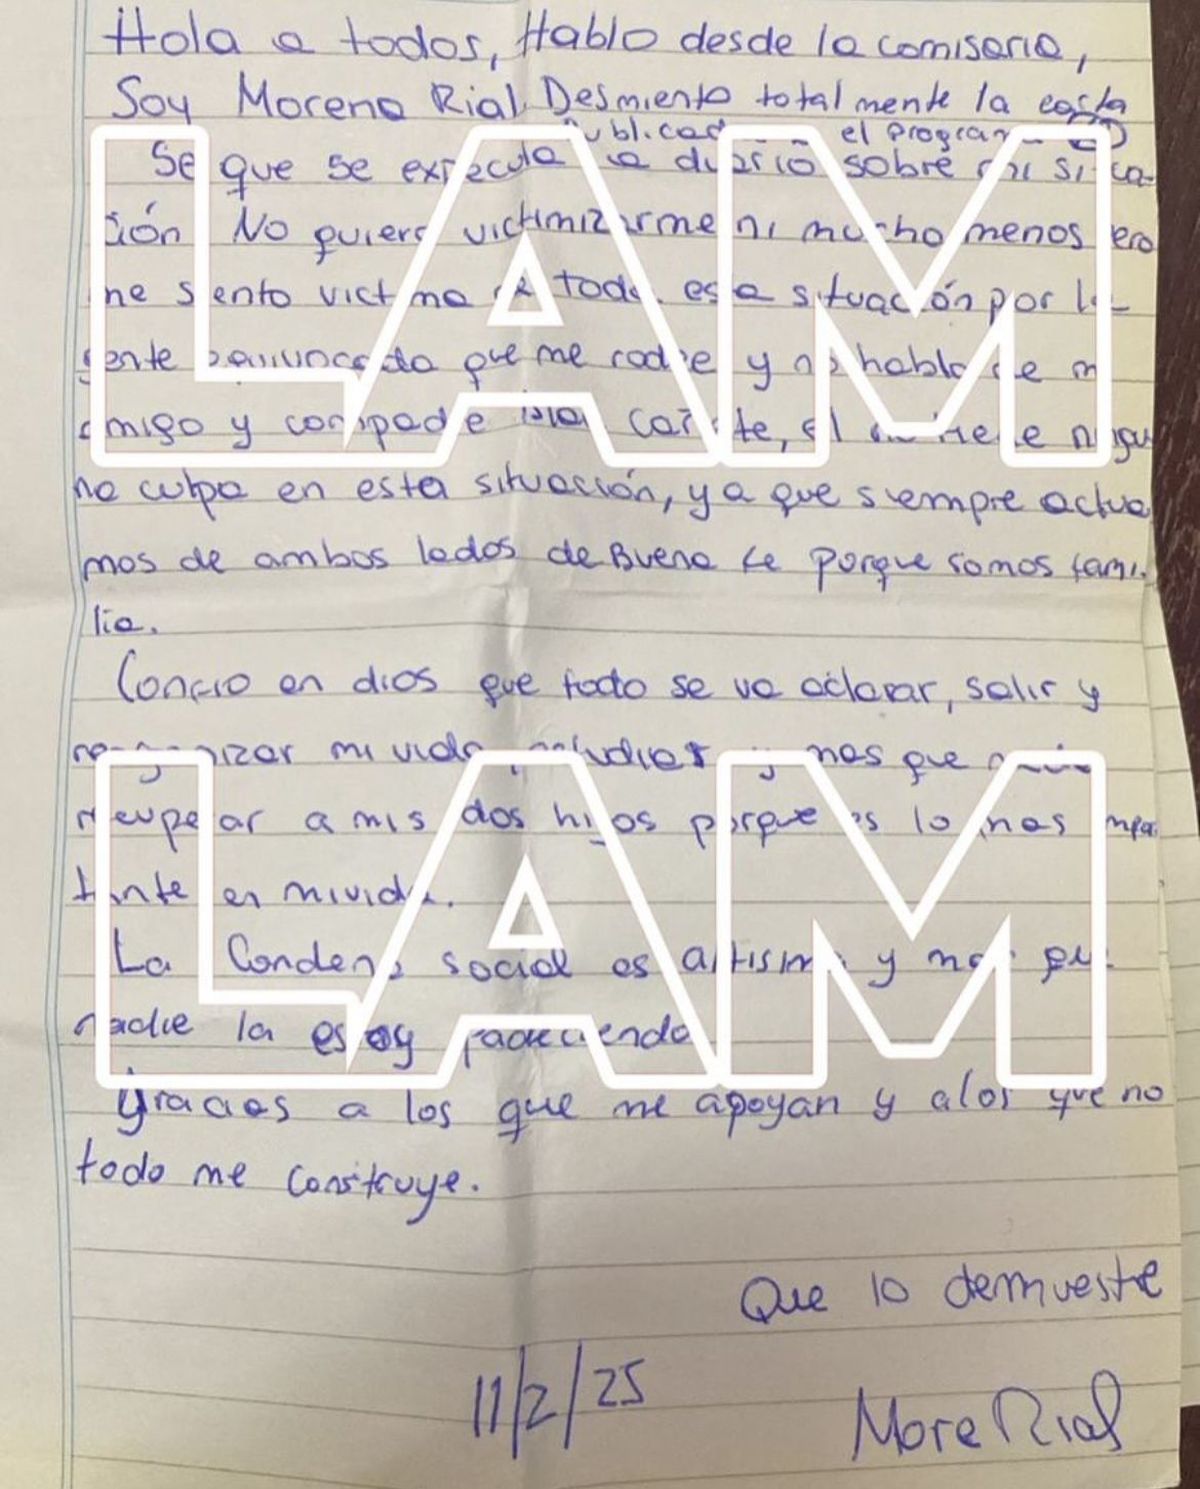 Hola a todos, Hablo desde la comisaria,
Soy Morena Rial. Desmiento totalmente la carta
publicada el programa
Se que se expecula a diario sobre mi situa-
ción No quiero victimizarme ni mucho menos pero
me siento victima de toda esa situación por la
gente equivocada que me rodee y no hablo de mi
amigo y compadre Cañete, el no tiene ningu
na culpa en esta situación, ya que siempre actua
mos de ambos lados de Buena fe porque somos fami.
lia.
Confio en dios que todo se va aclarar, salir y
reorganizar mi vida, estudiar y mas que nada
recuperar a mis dos hijos porque es lo mas impor
tante en mi vida.
La Condena social es altisima y mas que
nadie la estoy padeciendo
Gracias a los que me apoyan y a los que no
todo me construye.
Que lo demuestre
11/2/25
More Rial
LAM
LAM